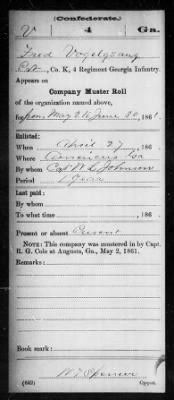 (Confederate.)
V 4 Ga.
Fred Vogelgsang
Co. K, 4 Regiment Georgia Infantry.
Appears on
Company Muster Roll
of the organization named above,
for from May 2 to June 30, 1861.
Enlisted:
When April 27, 186
Where Americus Ga
By whom Capt W. L. Johnson
Period 1 year
Last paid:
By whom
To what time , 186 .
Present or absent Present
NOTE: This company was mustered in by Capt.
R. G. Cole at Augusta, Ga., May 2, 1861.
Remarks:
Book mark:
Spencer
(642) Copyist.